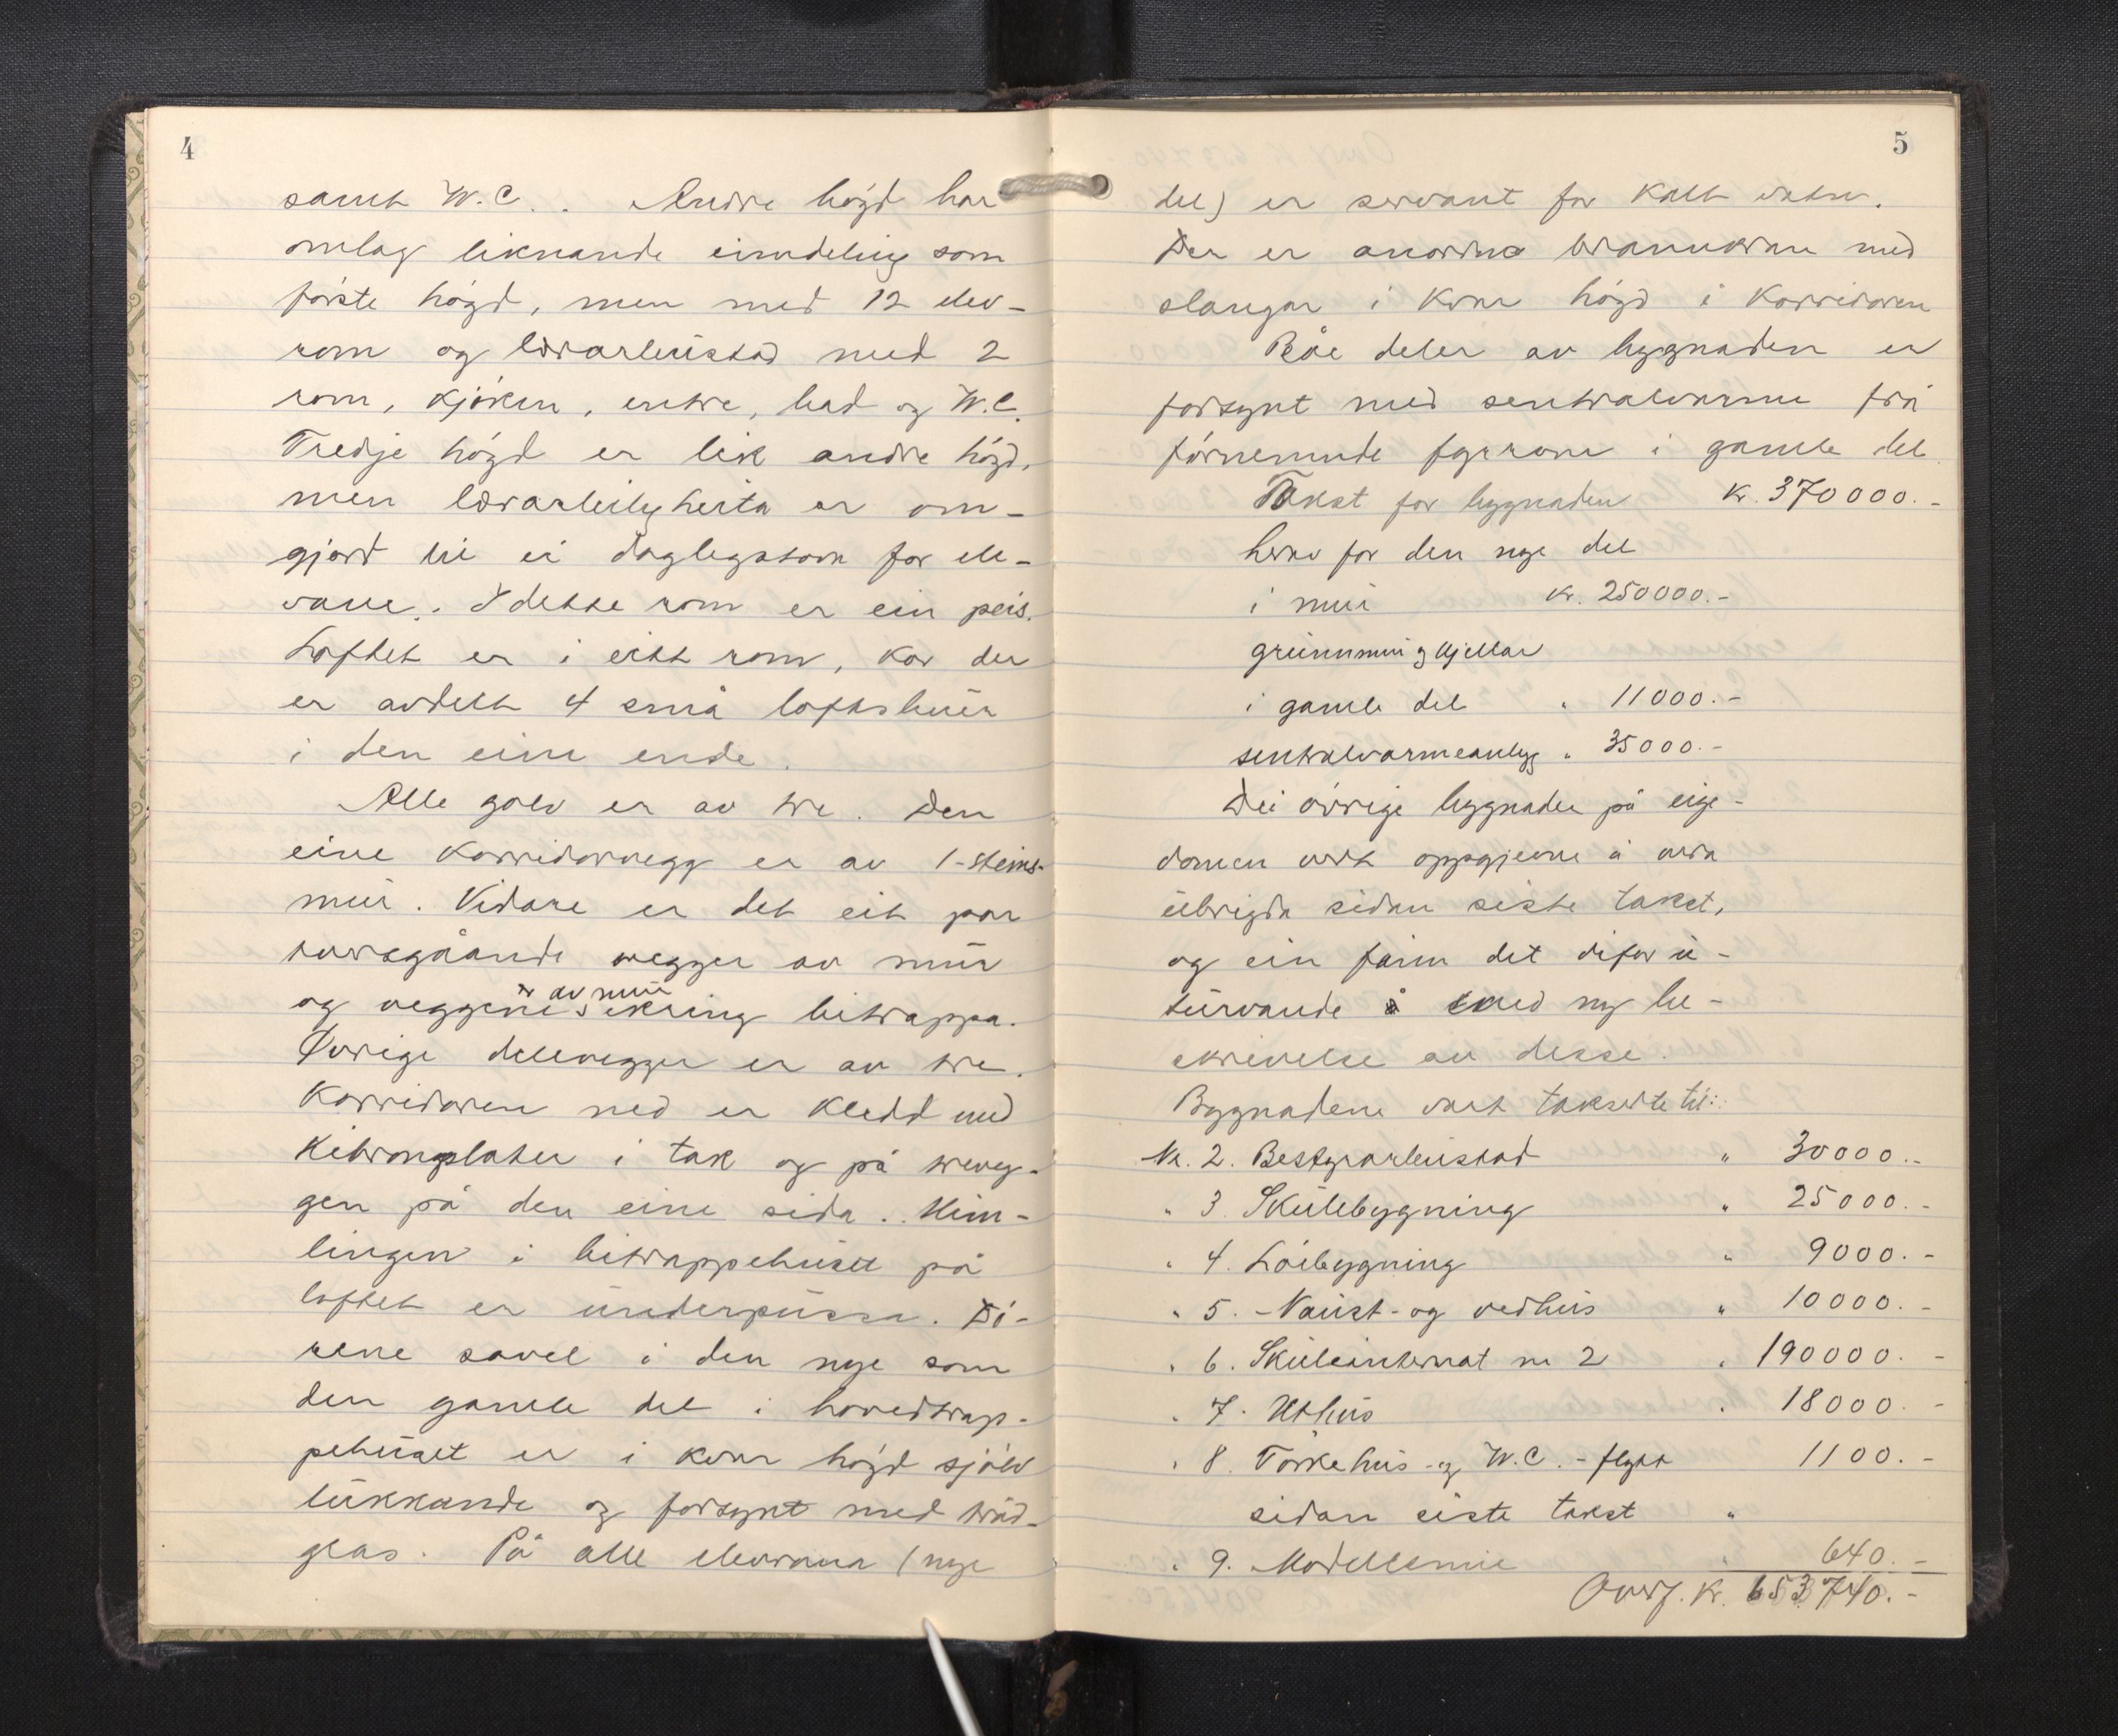 4
samt W.C.. Andre høgd har
omlag liknande inndeling som
første høgd, men med 12 elev-
rom og lærarbustad med 2
rom, kjøken, entre, bad og W.C.
Tredje høgd er lik andre høgd,
men lærarleilyheita er om-
gjord til ei daglegstova for ele-
vane. I dette rom er ein peis.
Loftet er i eitt rom, kor der
er avdelt 4 små loftsbuer
i den eine ende.
Alle golv er av tre. Den
eine korridorvegg er av 1-steins-
mur. Vidare er det eit par
tversgåande vegger av mur
og veggene ikring bitrappa.
er av mur
Øvrige delevegger er av tre.
Korridoren ned er kledd med
kitronplater i tak og på treveg-
gen på den eine sida. Him-
lingen i bitrappehuset på
loftet er underpussa. Dø-
rene savel i den nye som
den gamle del i hovedtrap-
pehuset er i kvar høgd sjølv
lukkande og forsynt med tråd-
glas. På alle elevroma (nye
5
del) er servant for kalt vatn.
Der er anordna brannkran med
slangar i kvar høgd i korridoren
Båe deler av bygnaden er
forsynt med sentralvarme frå
førnemnde fyrrom i gamle del.
Takst for bygnaden kr. 370000.-
herav for den nye del
i mur kr. 250000.-
grunnmur og kjellar
i gamle del " 11000.-
sentralvarmeanlegg " 35000.-
Dei øvrige bygnader på eige-
domen vart oppgjevne å vera
ubrigda sidan siste takst,
og ein fann det difor u-
turvande å med ny be-
skrivelse av desse.
Bygnadene vart takserte til:
Nr. 2. Bestyrarbustad " 30000.-
" 3. Skulebygning " 25000.-
" 4. Löebygning " 9000.-
" 5. Naust- og vedhus " 10000.-
" 6. Skuleinternat nr 2 " 190000.-
" 7. Uthus " 18000.-
" 8. Törkehus- og W.C. - flytt 1100.-
sidan siste takst "
" 9. " 640.-
Overf. kr. 653740.-